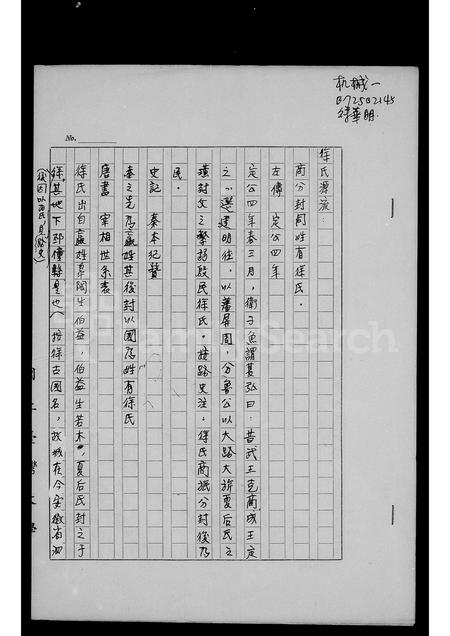 机械一
B72502145
徐華明
No.
徐氏源流：
商分封同姓有徐氏．
左傳 定公四年
定公四年春三月，衛子魚謂萇弘曰：昔武王克商成王定
之，選建明德，以藩屏周，分魯公以大路大旂夏后氏之
璜封父之繁弱殷民徐氏．按路史注．徐氏商祇分封後乃
民．
史記 秦本紀贊
秦之先為嬴姓其後封以國為姓有徐氏
唐書 宰相世系表
徐氏出自嬴姓皋陶生伯益，伯益生若木，夏后氏封之于
徐其地下邳僮縣是也（按徐古國名，故城在今安徽省泗
FamilySearch